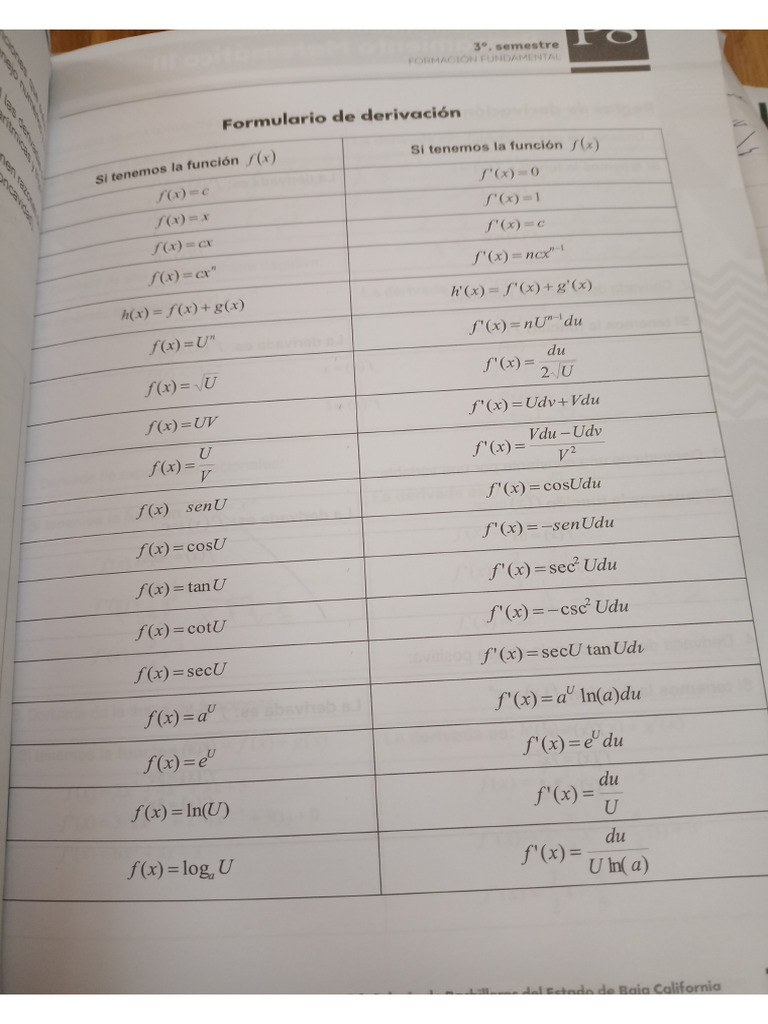 3°. semestre
FORMACIÓN FUNDAMENTAL
P8
Formulario de derivación
Si tenemos la función f(x) Si tenemos la función f(x)
f(x) = c f'(x) = 0
f(x) = x f'(x) = 1
f(x) = cx f'(x) = c
f(x) = cxⁿ f'(x) = ncxⁿ⁻¹
h(x) = f(x) + g(x) h'(x) = f'(x) + g'(x)
f(x) = Uⁿ f'(x) = nUⁿ⁻¹du
f(x) = √U f'(x) = du / 2√U
f(x) = UV f'(x) = Udv + Vdu
f(x) = U / V f'(x) = Vdu − Udv / V²
f(x) senU f'(x) = cosUdu
f(x) = cosU f'(x) = −senUdu
f(x) = tanU f'(x) = sec² Udu
f(x) = cotU f'(x) = −csc² Udu
f(x) = secU f'(x) = secU tanUdu
f(x) = a^U f'(x) = a^U ln(a)du
f(x) = e^U f'(x) = e^U du
f(x) = ln(U) f'(x) = du / U
f(x) = logₐ U f'(x) = du / U ln(a)
del Estado de Baja California